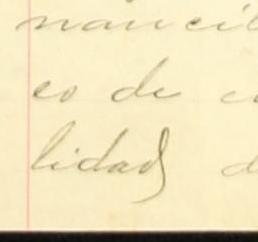 nancil
eo de c
lidad d